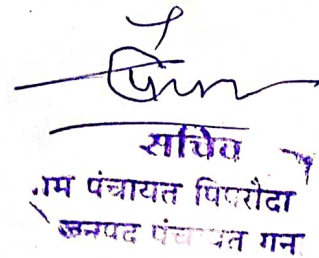 सचिव
ग्राम पंचायत पिपरौदा
जनपद पंचायत